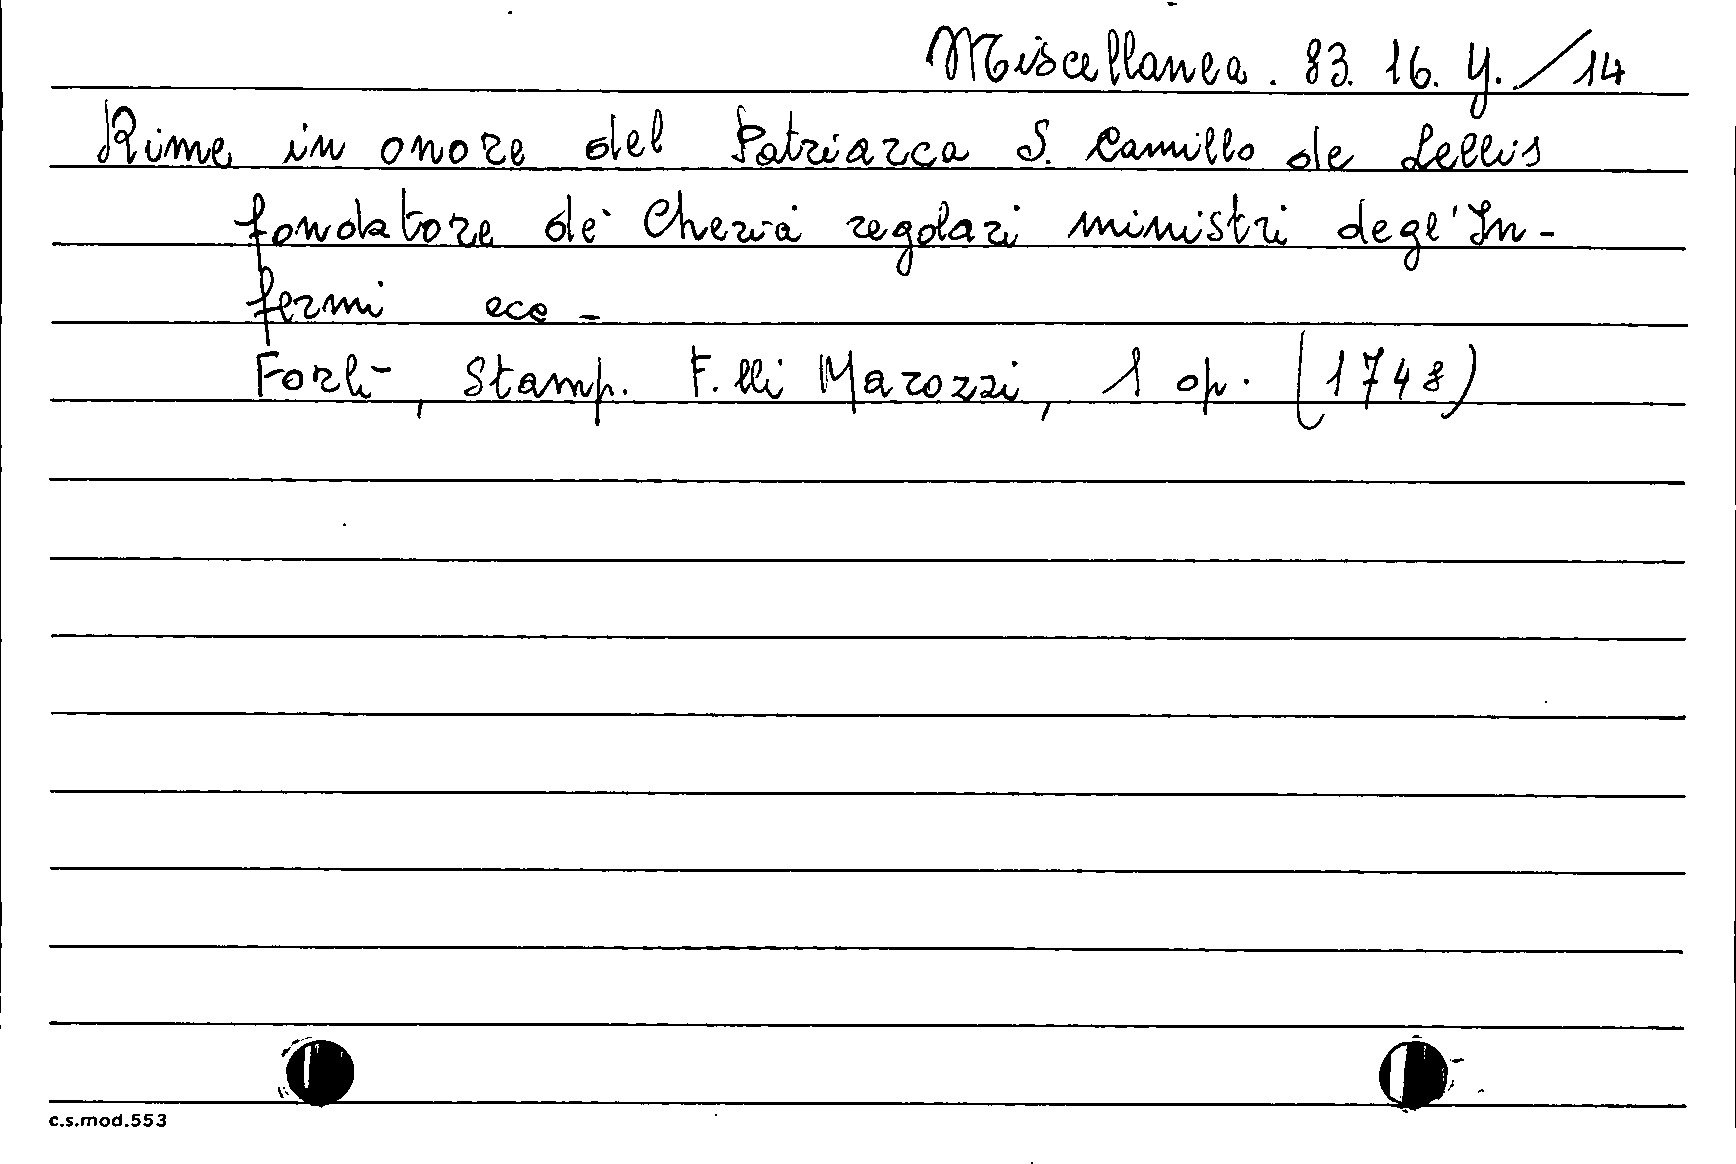 Miscellanea. 83. 16. Y./14
Rime in onore del Patriarca S. Camillo de Lellis
fondatore de' Cherici regolari ministri degl'In-
fermi ecc -
Forlì, Stamp. F.lli Marozzi, 1 op. (1748)
c.s.mod.553